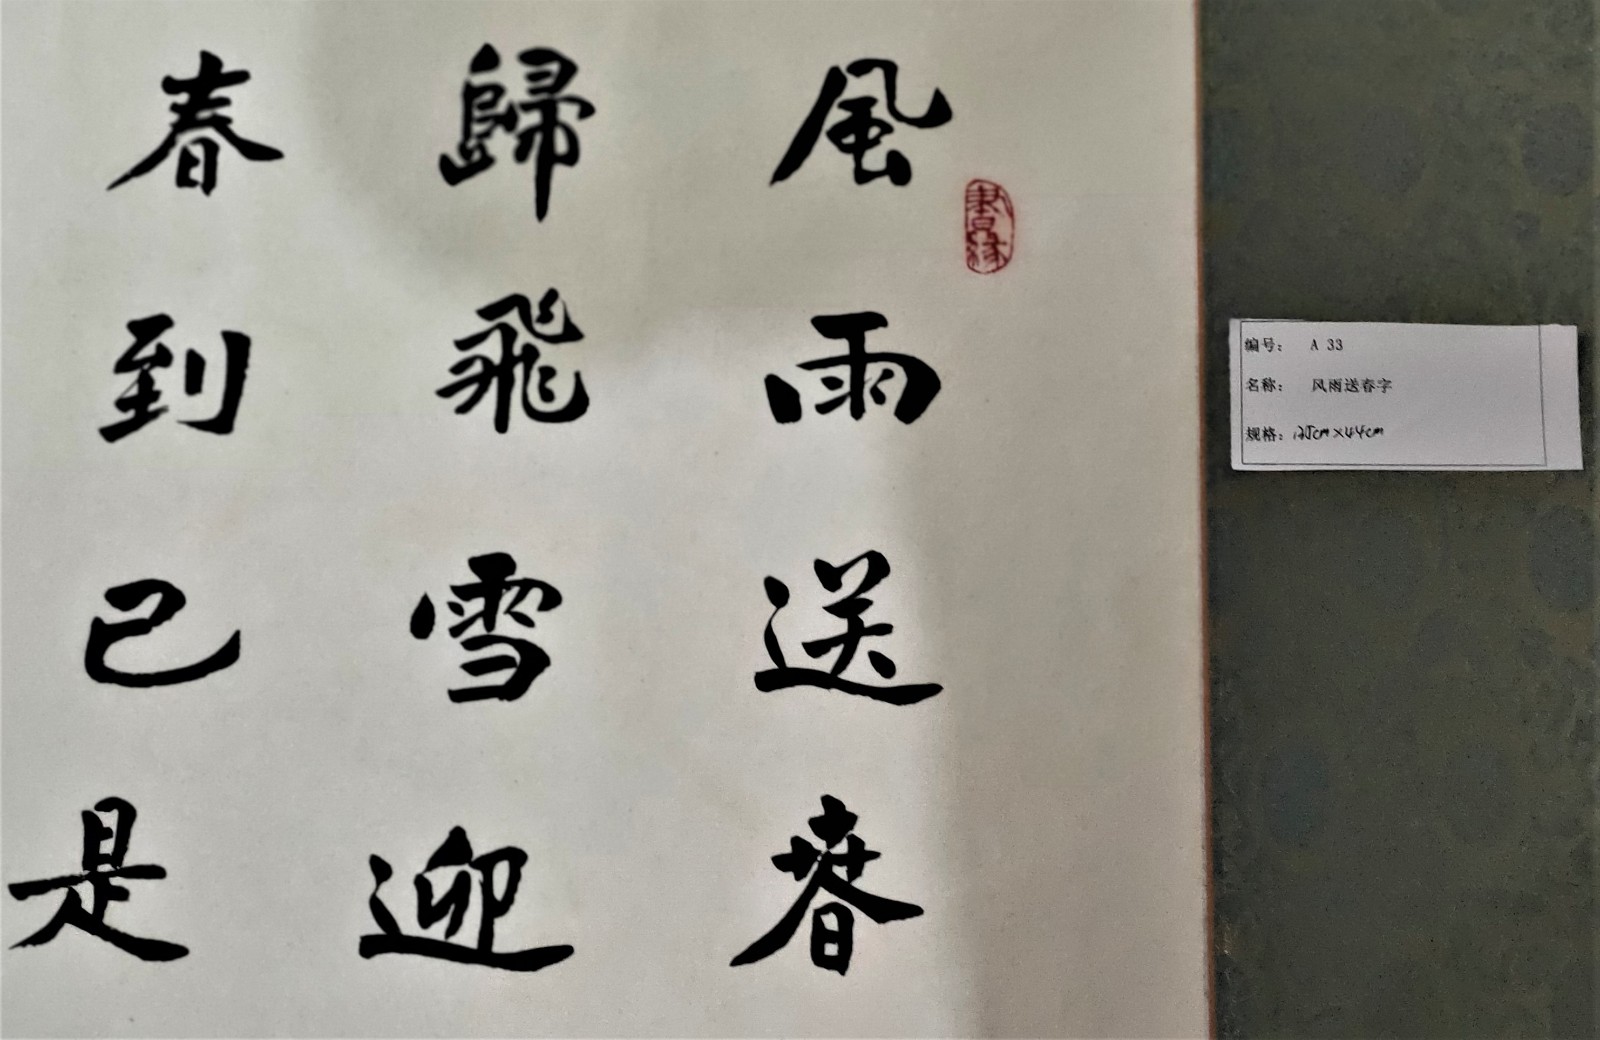 風雨送春
歸飛雪迎
春到已是
编号： A 33
名称： 风雨送春字
规格：